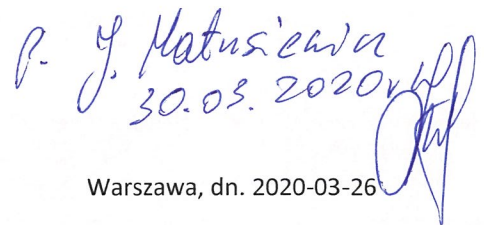 P. J. Matusiewicz
30.03. 2020r
Warszawa, dn. 2020-03-26